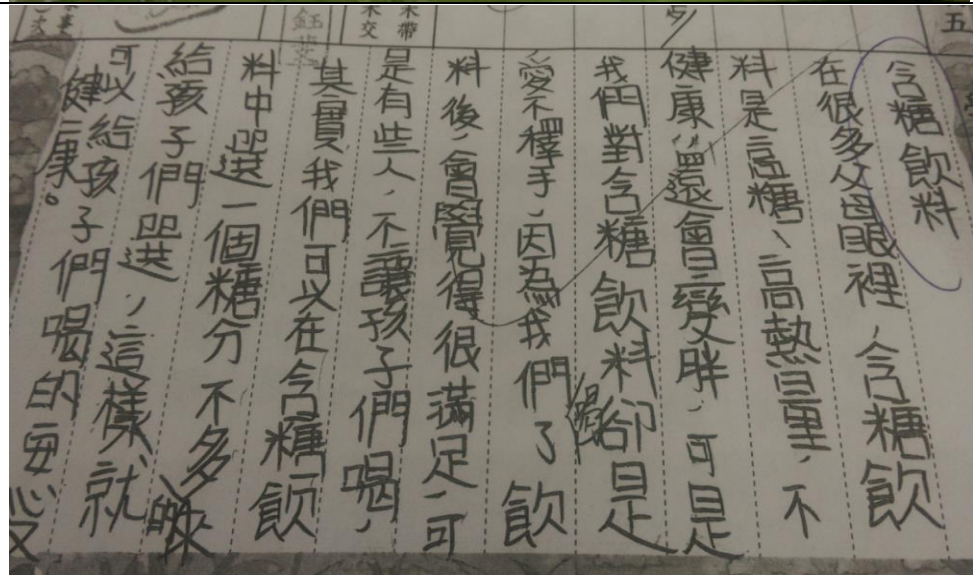 五
未帶
未交
含糖飲料
在很多父母眼裡，含糖飲
料是高糖、高熱量，不
健康，還會變胖，可是
我們對含糖飲料卻是
愛不釋手，因為我們喝了飲
料後，會覺得很滿足，可
是有些人，不讓孩子們喝，
其實我們可以在含糖飲
料中選一個糖分不多
給孩子們選，這樣就
可以給孩子們喝的
健康。